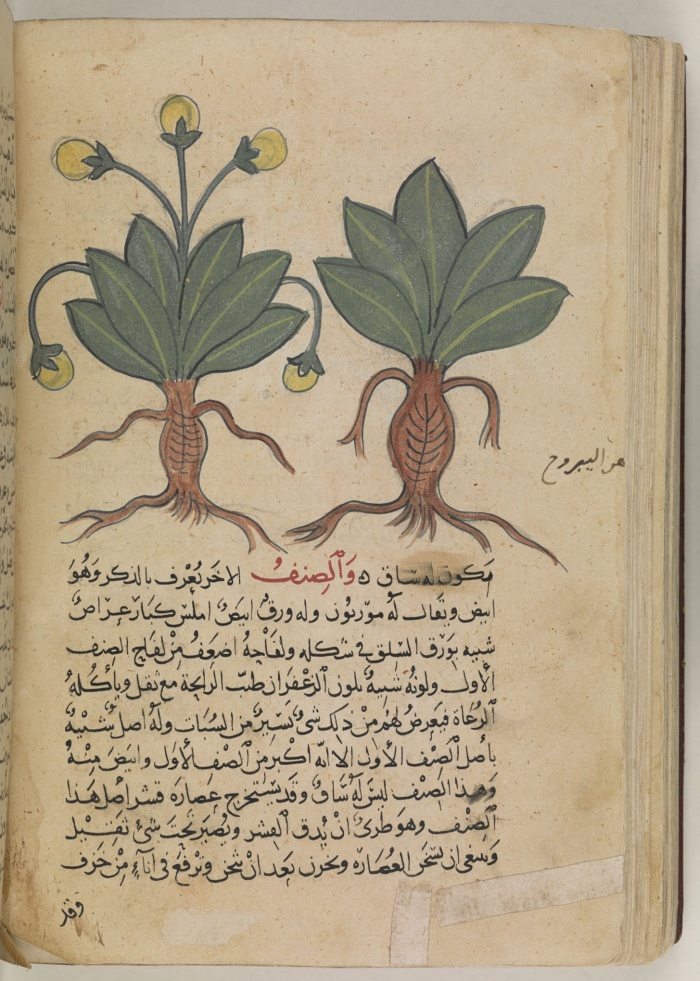 هو اليبروح
يكون له ساق ۞ وَالصِنفُ الاخر يُعْرف بالذكر وَهُوَ
ابيض ويقال لهُ موريون وله ورقٌ ابيضُ املسُ كبارٌ عِراضٌ
شبيه بوَرَق السّلق في شكله ولفاحُهُ اضعَفُ مِنْ لفاح الصنف
الأول ولونُهُ شبيهٌ بلون الزعفران طيّب الرايحة مع ثقل وياكُلُهُ
الرعاة فيعرِضُ لهُم مِنْ ذلك شئٌ يَسيرٌ من السُبَات ولَهُ اصلٌ شبيهٌ
باصل الصّنف الأوَل الا انه اكبر من الصّنف الأوَل وابيَضَ مِنهُ
وَهذا الصِنف ليسَ لهُ سَاقٌ وَقد يُستخرج عصارة قشر اصْل هَذا
الصِنف وهوَ طَرِيٌّ انْ يُدق القشر ويُصيَّر تحت شئ ثقيل
وينبغي ان تسخن العُصَاره وتخزن بعَد انْ تثخن وترفَع في اناءٍ مِنْ خزف
وَقد